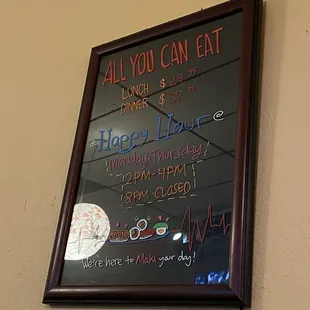 ALL YOU CAN EAT
LUNCH $
DINNER $ 32
Happy Hour
Monday-Thursday
2PM-4PM
8PM-CLOSED
We're here to Maki your day!